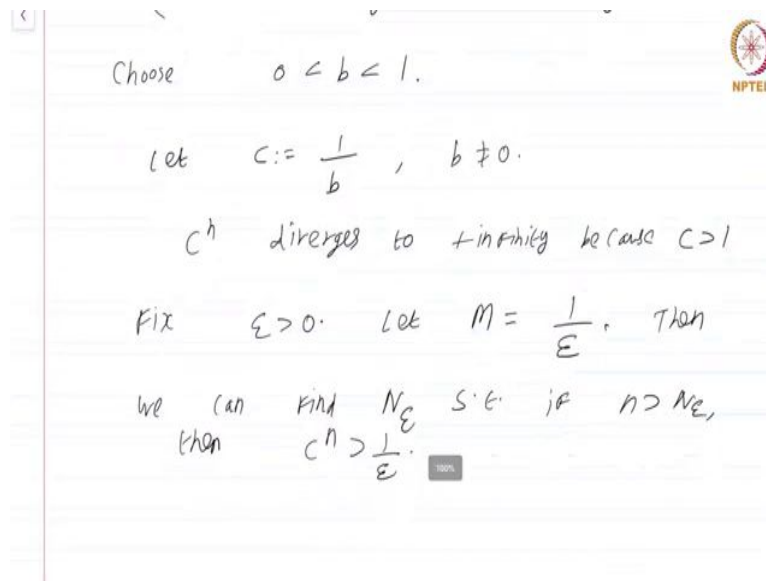 NPTEL
Choose 0 < b < 1.
Let C := 1/b , b ≠ 0.
C^n diverges to +infinity because C > 1
Fix ε > 0. Let M = 1/ε . Then
we can find N_ε s.t. if n > N_ε,
then C^n > 1/ε.
100%